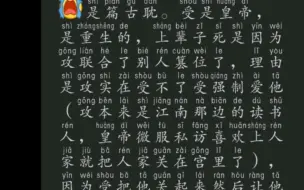 shì piān gǔ dān shòu shì huáng dì
是篇古耽。受是皇帝，
shì zhòng shēng de shàng bèi zǐ sǐ shì yīn wèi
是重生的，上辈子死是因为
gōng lián hé le bié rén cuàn wèi le lǐ yóu
攻联合了别人篡位了，理由
shì gōng shí zài shòu bù le shòu qiáng zhì ài tā
是攻实在受不了受强制爱他
gōng běn lái shì jiāng nán nà biān de dú shū
（攻本来是江南那边的读书
rén huáng dì wēi fú sī fǎng xǐ huān shàng rén
人，皇帝微服私访喜欢上人
jiā jiù bǎ rén jiā guān zài gōng lǐ le
家就把人家关在宫里了），
yīn wèi shòu bǎ tā guān qǐ lái rán hòu tā
因为受把他关起来然后让他